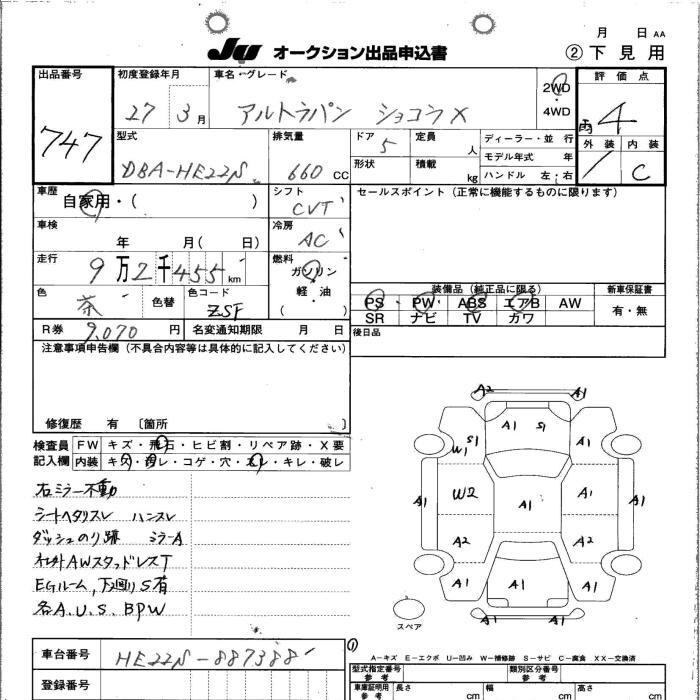 月 日 AA
JU オークション出品申込書
② 下見用
出品番号 747
初度登録年月 27 3月
車名・グレード アルトラパン ショコラX
2WD
4WD
評価点
両4
外装 内装
C
型式 DBA-HE22S
排気量 660 CC
ドア 5
定員 人
形状
積載 kg
ディーラー・並行
モデル年式 年
ハンドル 左・右
車歴 自家用・( )
シフト CVT
セールスポイント(正常に機能するものに限ります)
車検 年 月( 日)
冷房 AC
走行 9万2千455 km
燃料 ガソリン
軽・油
( )
色 茶 色替
色コード ZSF
装備品(純正品に限る) 新車保証書
PS PW ABS エアB AW 有・無
SR ナビ TV カワ
R券 9,070 円 名変通知期限 月 日
後日品
注意事項申告欄(不具合内容等は具体的に記入してください)
修復歴 有 〔箇所 〕
検査員 FW キズ・飛石・ヒビ割・リペア跡・X要
記入欄 内装 キズ・汚レ・コゲ・穴・スレ・キレ・破レ
右ミラー不動
シートヘタリスレ ハンスレ
ダッシュのり跡 ミラーA
社外AWスタッドレスT
EGルーム,下廻りS有
各A.U.S.BPW
A2 A1
A1 S1
S1
W1
A1 W2 A1 A1 A1
A2 A2
A1 A1 A1
A1
スペア
車台番号 HE22S-887388
①
A-キズ E-エクボ U-凹み W-補修跡 S-サビ C-腐食 XX-交換済
登録番号
型式指定番号 参考
類別区分番号 参考
車庫証明用 参考
長さ cm 幅 cm 高さ cm